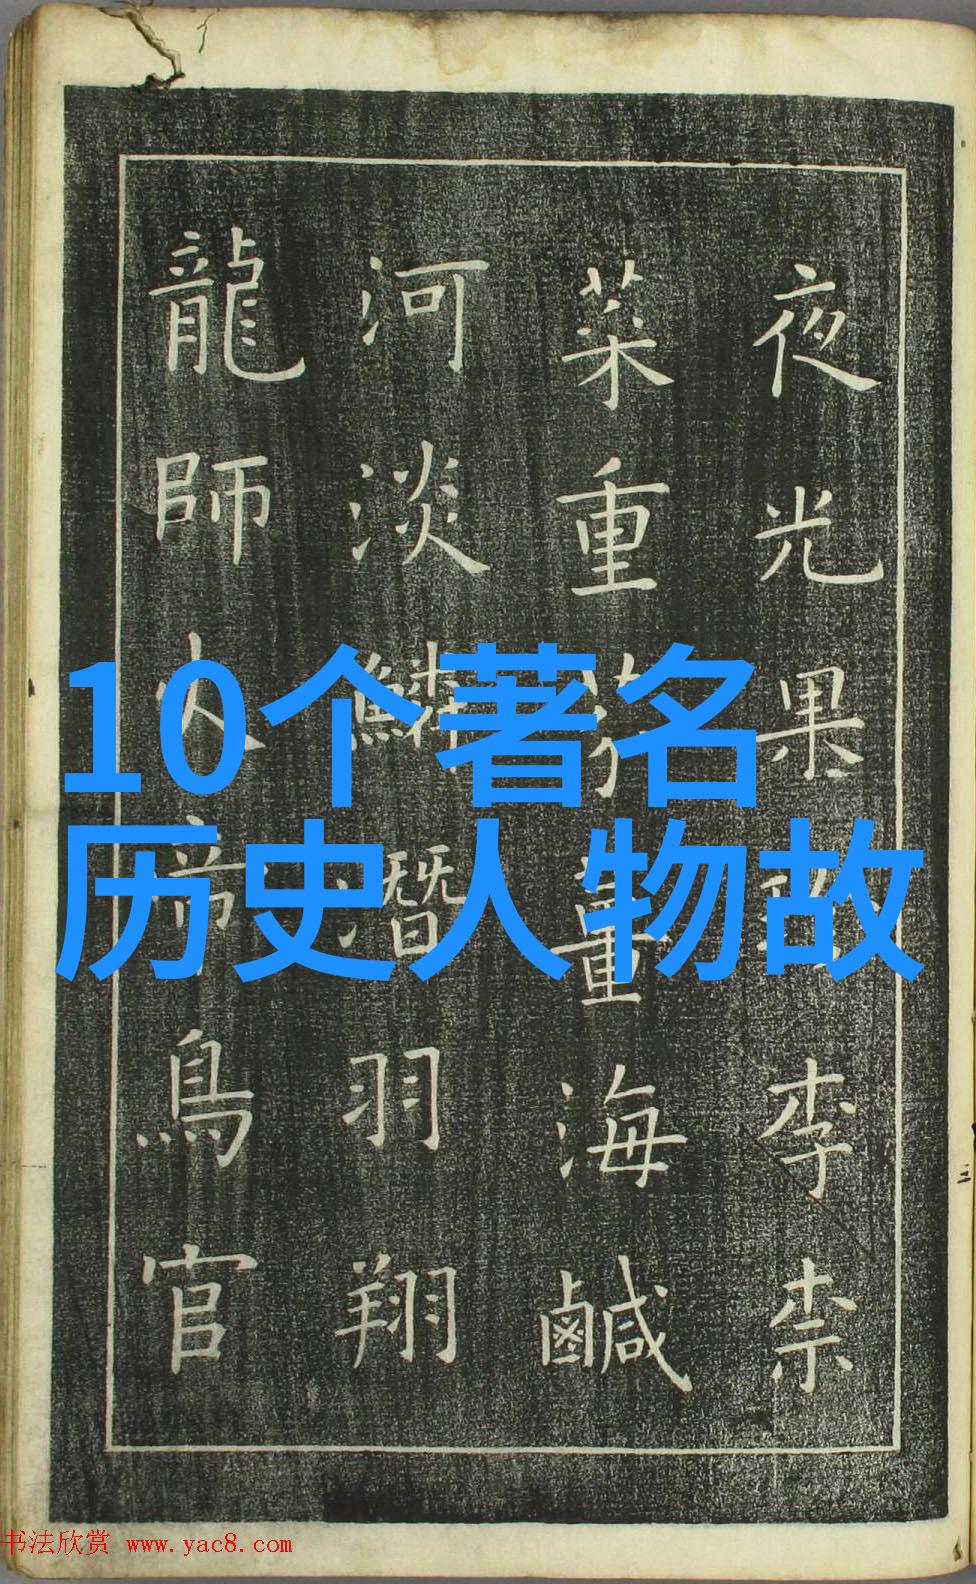 夜光果珍李柰
菜重芥薑海鹹
河淡鱗潛羽翔
龍師火帝鳥官
10个著名
历史人物故
书法欣赏 www.yac8.com